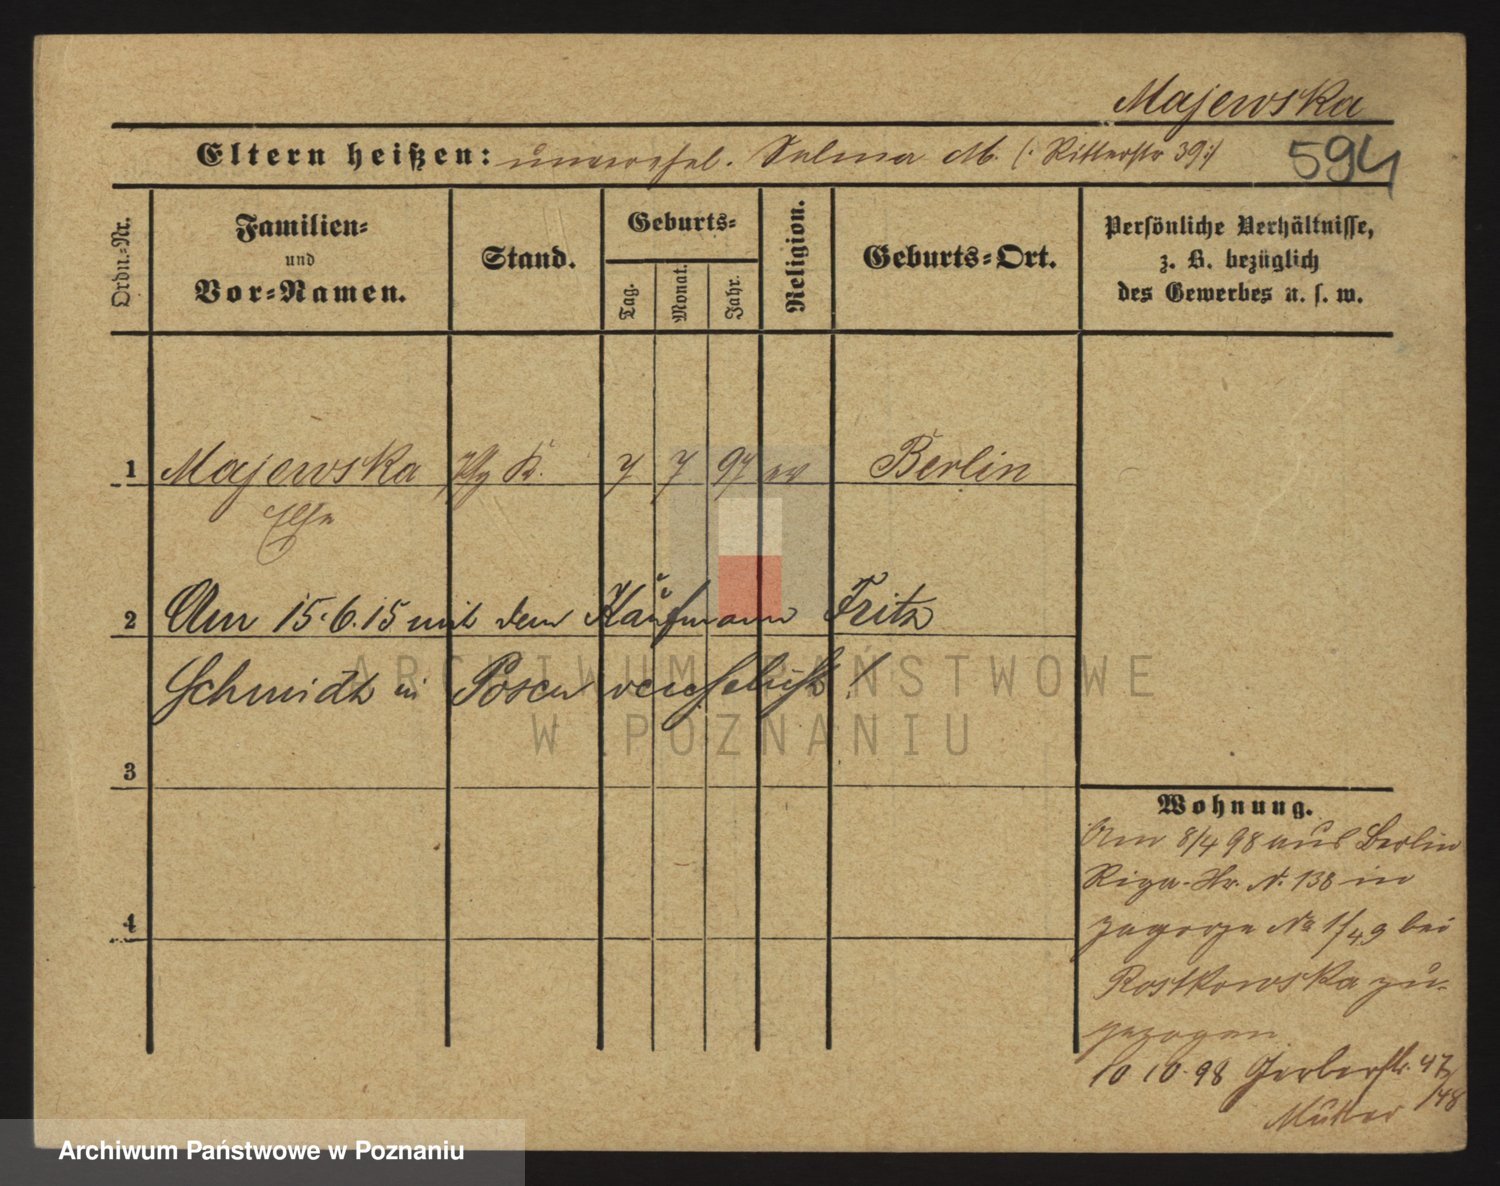 Majewska
Eltern heißen: unverehel. Selma M. (: Ritterstr 39 :)
594
Ordn.-Nr.
Familien-
und
Vor-Namen.
Stand.
Geburts-
Tag.
Monat.
Jahr.
Religion.
Geburts-Ort.
Persönliche Verhältnisse,
z. B. bezüglich
des Gewerbes u. s. w.
1 Majewska Pfg K. 7 7 97 ev Berlin
Else
2 Am 15.6.15 mit dem Kaufmann Fritz
Schmidt in Posen verehelicht!
3
4
Wohnung.
Am 8/4 98 aus Berlin
Riga-Str. N. 138 in
Zagorze No 1/49 bei
Rostkowska zu-
gezogen
10 10. 98 Gerberstr. 47
/48
Mutter
ARCHIWUM PAŃSTWOWE
W POZNANIU
Archiwum Państwowe w Poznaniu